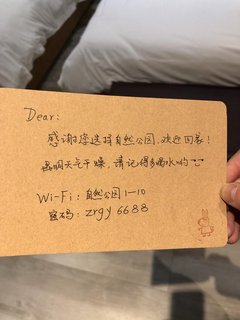 Dear:
感谢您选择自然公园,欢迎回家!
昆明天气干燥,请记得多喝水哟
Wi-Fi: 自然公园1-10
密码: zrgy6688